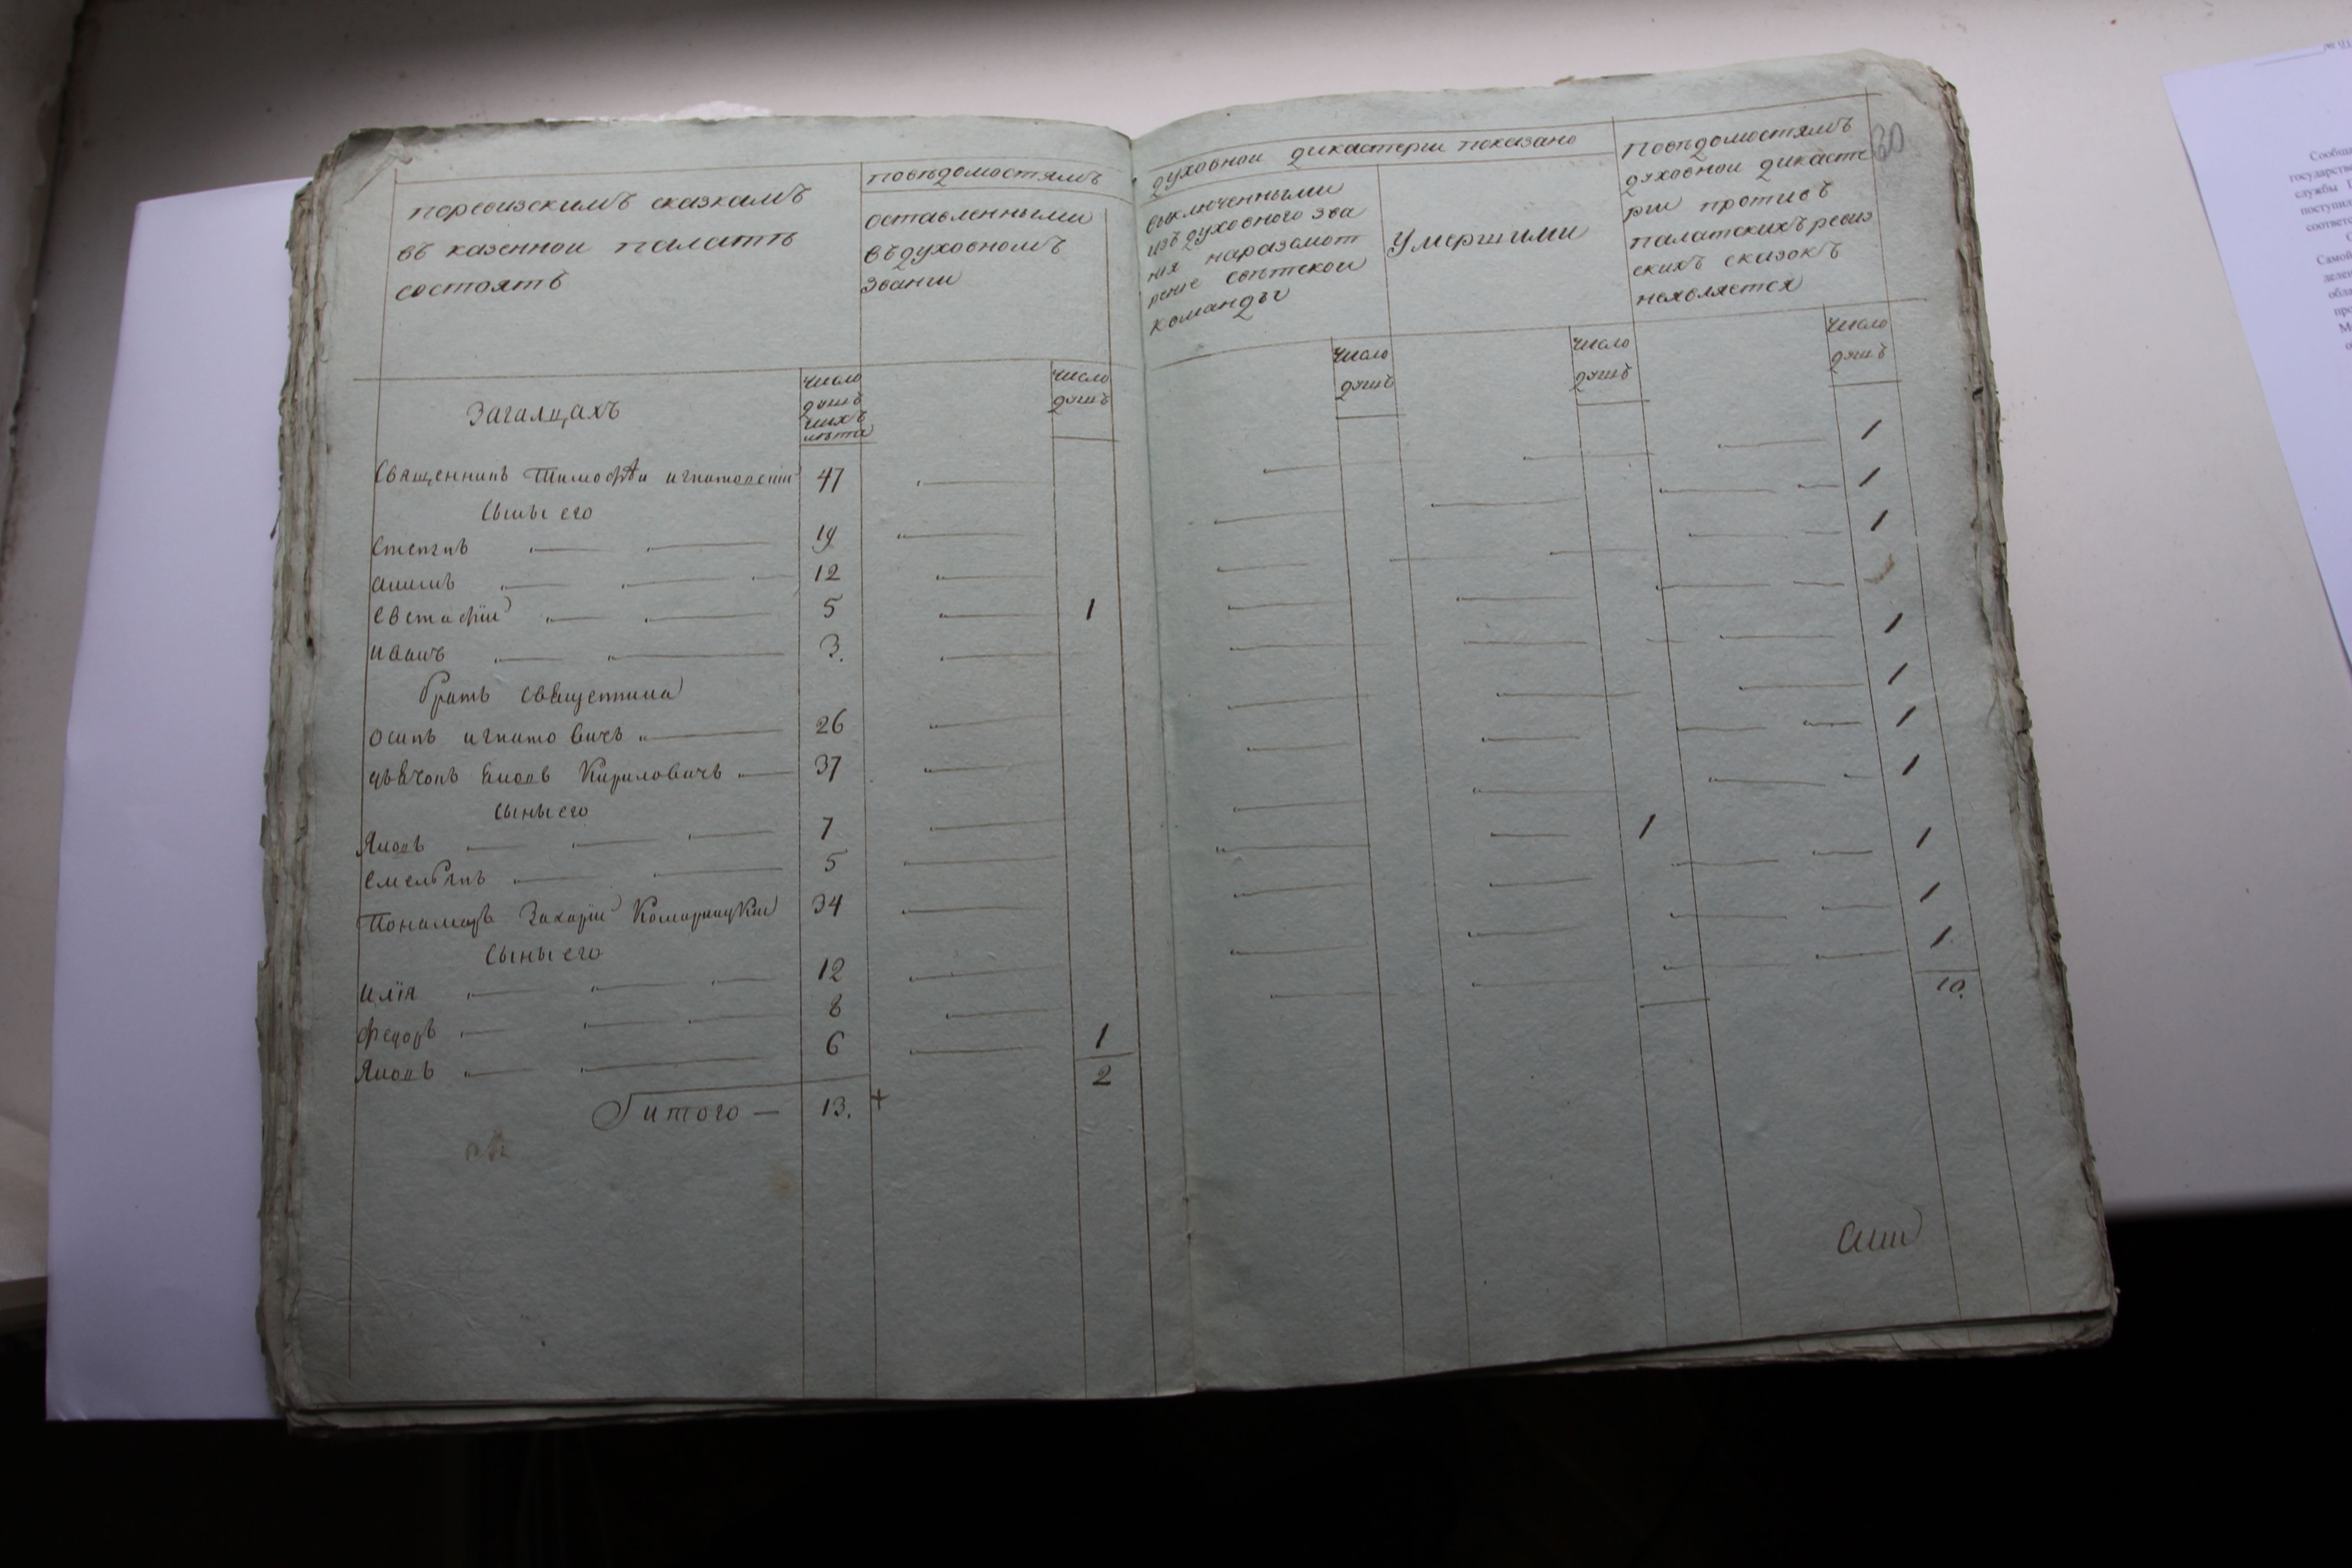 поревизскимъ сказкамъ
въ казеннои палатѣ
состоятъ
повѣдомостямъ
оставленными
въ духовномъ
звании
духовнои дикастерии показано
выключенными
изъ духовного зва
ния наразсмот
рение свѣтскои
команды
Умершими
повѣдомостямъ
духовнои дикасте
рии противъ
палатскихъ ревиз
скихъ сказокъ
неявляется
30
Загалцахъ
число
душъ
ихъ
лѣта
число
душъ
число
душъ
число
душъ
число
душъ
Священникъ Тимофѣи игнатовичъ 47 1
Сыны его
Степанъ 19 1
12 1
Евстафіи 5 1
иванъ 3. 1
братъ священника
осипъ игнатовичъ 26 1
дьячокъ Яковъ Кириловичъ 37 1
Сыны его
Яковъ 7 1
Емельянъ 5 1
Пономарь Захаріи Комарницкии 34 1
Сыны его
илія 12 1
федоръ 8 1
Яковъ 6 1
2
10.
итого — 13. +